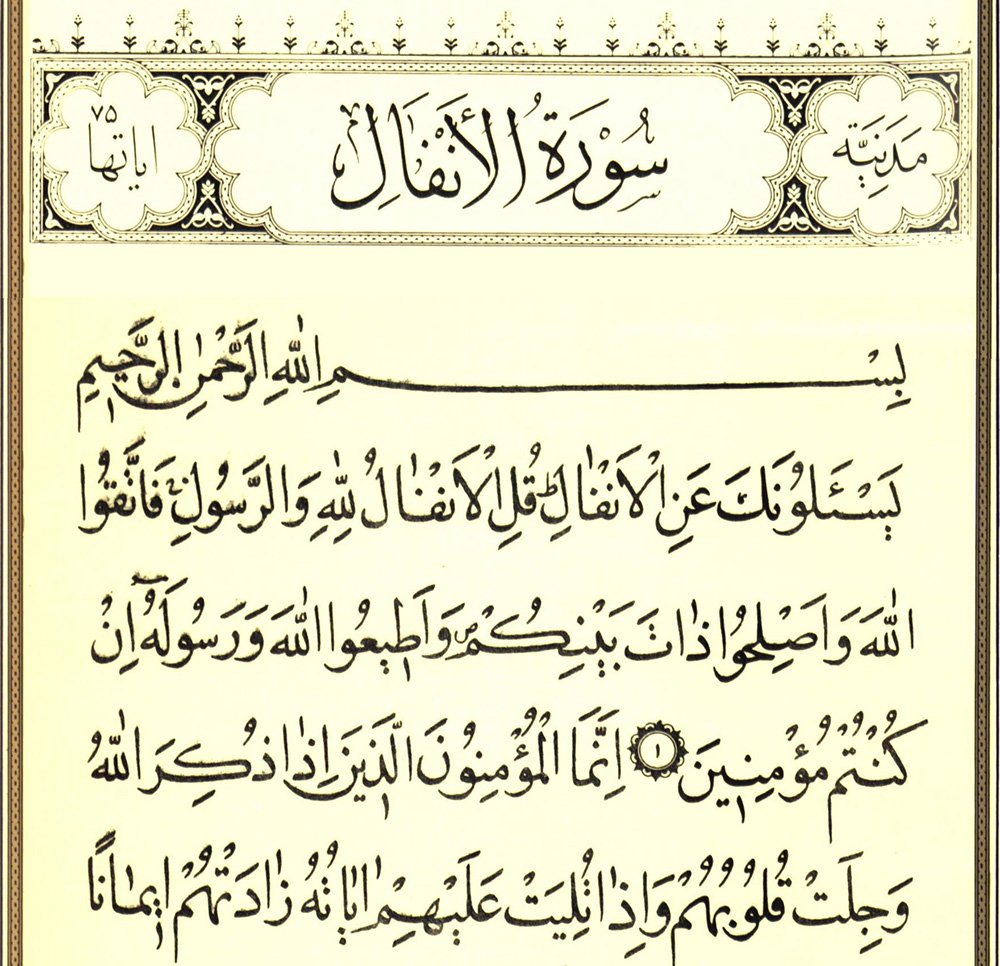 مَدَنِيَّة
سُوْرَةُ الْأَنْفَالِ
۷۵
اياتها
بِسْمِ اللّٰهِ الرَّحْمٰنِ الرَّحٖيمِ
يَسْـَٔلُونَكَ عَنِ الْاَنْفَالِؕ قُلِ الْاَنْفَالُ لِلّٰهِ وَالرَّسُولِۚ فَاتَّقُوا
اللّٰهَ وَاَصْلِحُوا ذَاتَ بَيْنِكُمْࣕ وَاَطٖيعُوا اللّٰهَ وَرَسُولَهُٓ اِنْ
كُنْتُمْ مُؤْمِنٖينَ ۱ اِنَّمَا الْمُؤْمِنُونَ الَّذٖينَ اِذَا ذُكِرَ اللّٰهُ
وَجِلَتْ قُلُوبُهُمْ وَاِذَا تُلِيَتْ عَلَيْهِمْ اٰيَاتُهُ زَادَتْهُمْ اٖيمَانًا